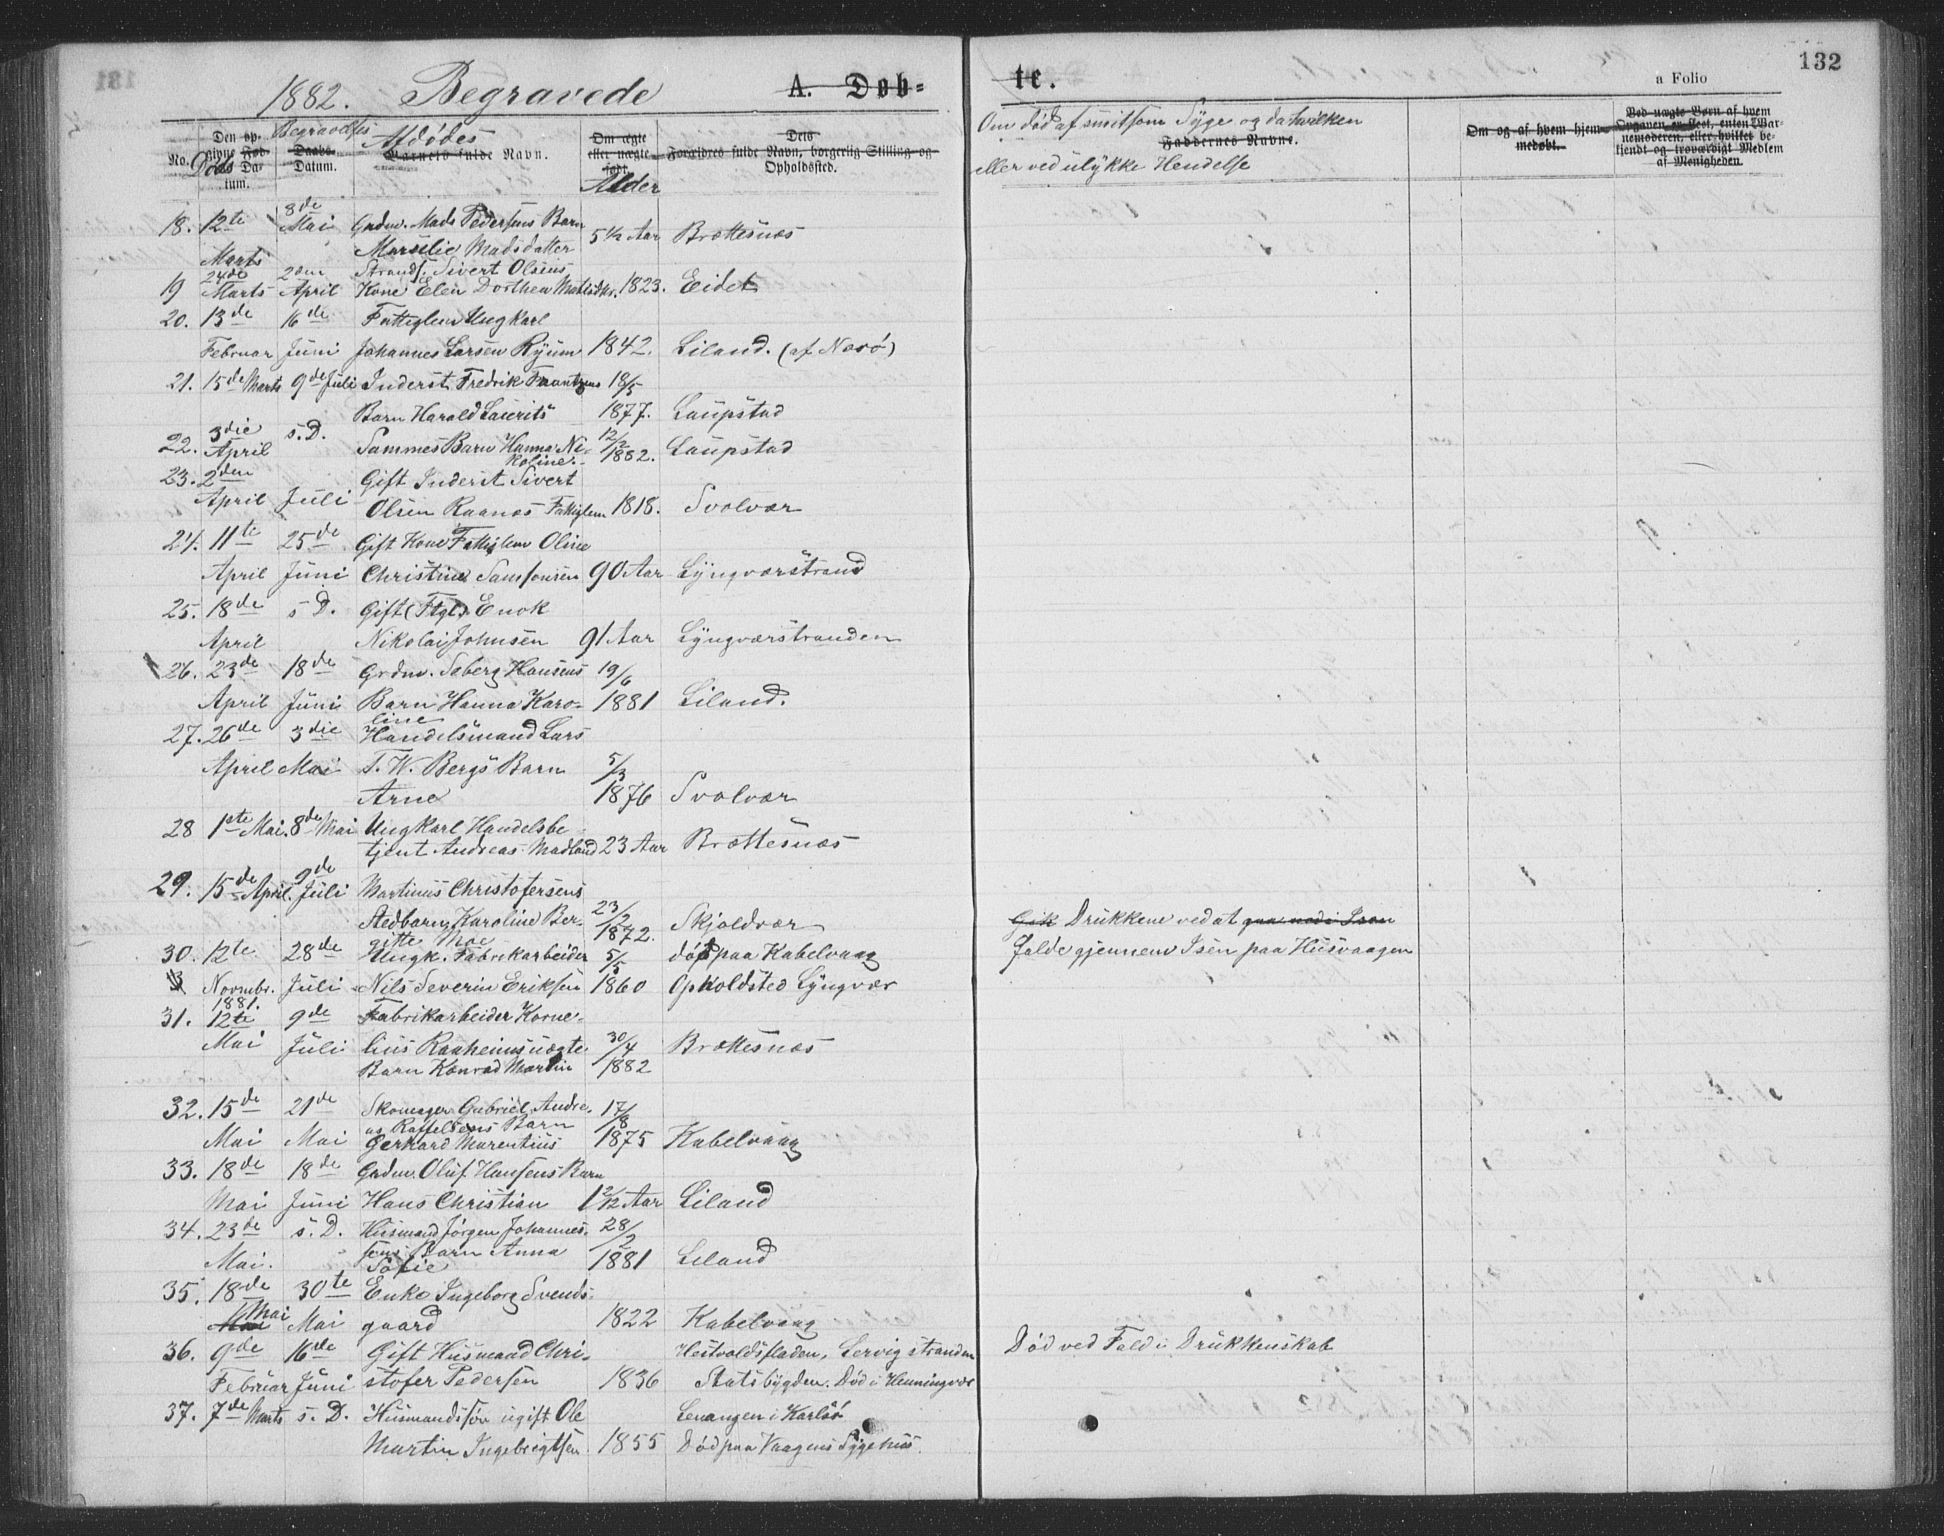 131
132
1882. Begravede A. Døb=
te.
a Folio
No.
Den op-
givne Fød-
Døds
sels Da-
tum.
Begravelses
Daabs-
Datum.
Afdødes
Barnets fulde Navn.
Om ægte
eller uægte
født.
Alder
Dets
Forældres fulde Navn, borgerlig Stilling og
Opholdssted.
Om død af smitsom Syge og da hvilken
Faddernes Navne.
eller ved ulykke Hendelse
Om og af hvem hjem-
medøbt.
Ved uægte Børn af hvem
Opgaven er skeet, enten Bar-
nemoderen, eller hvilket be-
kjendt og troværdigt Medlem
af Menigheden.
18. 12te 8de Mai Grdm. Mads Pedersens Barn
Marts Marselie Madsdatter 5½ Aar Brættesnæs
24de 2den Strands. Sivert Olsens
19 Marts April Kone Elen Dorthea Matisdtr. 1823. Eidet
20. 13de 16de Fattiglem Ungkarl
Februar Juni Johannes Larsen Ryum 1842. Liland. (af Norø)
21. 15de Marts 9de Juli Inderst. Fredrik Frantzens 18/5
Barn Harald Laurits 1877. Laupstad
22. 3die April s. D. Sammes Barn Hanna Ni- 12/2 1882. Laupstad
koline
23. 2den Gift Inderst Sivert
April Juli Olsen Raanes Fattiglem 1818. Svolvær
24. 11te 25de Gift Kone Fattiglem Oline
April Juni Christine Samsonsen 90 Aar Lyngværstrand
25. 18de s D. Gift (Ftgl.) Enok
April Nikolai Johnsen 91 Aar Lyngværstranden
26. 23de 18de Grdm. Seberg Hansens 19/6
April Juni Barn Hanna Karo- 1881 Liland.
line
27. 26de 3die Handelsmand Lars
April Mai T. W. Bergs Barn 5/3
Arne 1876 Svolvær
28 1ste Mai. 8de Mai Ungkarl Handelsbe
tjent Andreas Madland 23 Aar Brættesnæs
29. 15de April. 9de Juli Martinus Christofersens
Stedbarn Karoline Ber- 23/2 1872. Skjoldvær Gik Drukkene ved at gaa ned i Isen
gitte Moe
30. 12te 28de Ungk. Fabrikarbeider 5/5 død paa Kabelvaag falde gjennem Isen paa Husvaagen
Novmbr. Juli Nils Severin Eriksen 1860 Opholdsted Lyngvær
1881.
31. 12te 9de Fabrikarbeider Korne-
Mai Juli lius Raaheims uægte 30/4 Brættesnæs
Barn Konrad Martin 1882
32. 15de 21de Skomager Gabriel Andre- 17/8
as Raffelsens Barn
Mai Mai Gerhard Marentius 1875 Kabelvaag
33. 18de 18de Grdm. Oluf Hansens Barn
Mai Juni Hans Christian 1 2/12 Aar Liland
34. 23de s. D. Husmand Jørgen Johannes- 28/2
Mai. sens Barn Anna 1881 Liland
Sofie
35. 18de 30te Enke Ingeborg Svends-
Mai Mai Mai gaard 1822 Kabelvaag
36. 9de 16de Gift Husmand Chri- Hestvoldsfladen, Lervig stranden Død ved Fald i Drukkenskab
Februar Juni stofer Pedersen 1836 Statsbygden. Død i Henningvær
37. 7de Marts s. D. Husmandssøn ugift Ole Lenangen i Karlsø
Martin Ingebrigtsen 1855 Død paa Vaagens Sygehus.